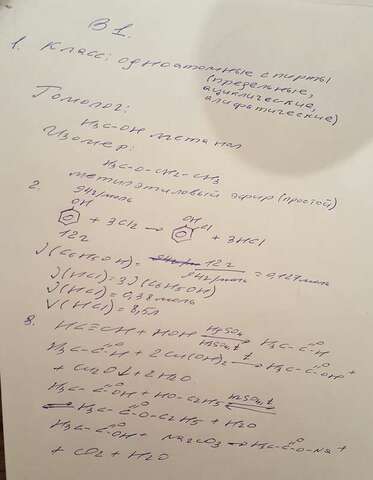 В 1.
1. Класс: одноатомные спирты
(предельные,
ациклические,
алифатические)
Гомолог:
H₃C-OH метанол
Изомер:
H₃C-O-CH₂-CH₃
метилэтиловый эфир (простой)
2. 94г/моль
OH OH
+ 3Cl₂ → Cl + 3HCl
12г
ν(C₆H₅OH) = 12г / 94г/моль = 0,127моль
ν(HCl) = 3ν(C₆H₅OH)
ν(HCl) = 0,38моль
V(HCl) = 8,5л
3. HC≡CH + HOH H₂SO₄ HgSO₄ t → H₃C-C=O H
H₃C-C=O H + 2Cu(OH)₂ t → H₃C-C=O OH +
+ Cu₂O↓ + 2H₂O
H₃C-C=O OH + HO-C₂H₅ H₂SO₄, t ⇄
⇄ H₃C-C=O-O-C₂H₅ + H₂O
H₃C-C=O OH + Na₂CO₃ → H₃C-C=O-O-Na +
+ CO₂ + H₂O